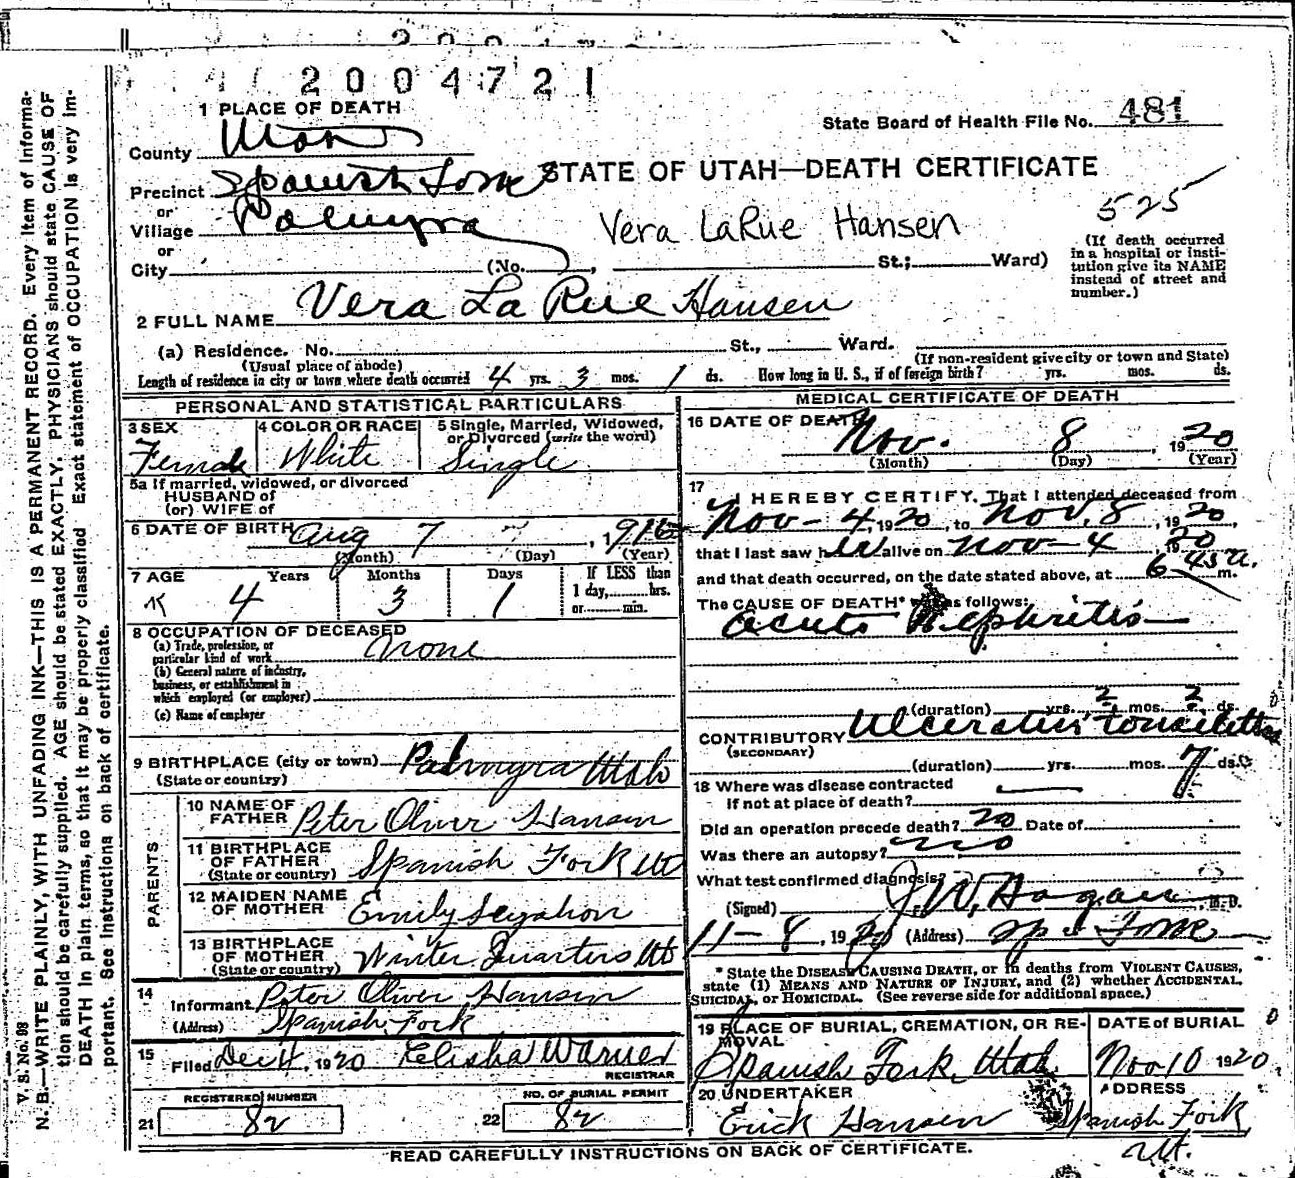 2004721
1 PLACE OF DEATH
State Board of Health File No. 481
County Utah
STATE OF UTAH—DEATH CERTIFICATE
Precinct Spanish Fork
or
Village Palmyra
Vera LaRue Hansen
525
or
City (No. , St.; Ward)
(If death occurred
in a hospital or insti-
tution give its NAME
instead of street and
number.)
2 FULL NAME Vera La Rue Hansen
(a) Residence. No. St., Ward.
(Usual place of abode)
(If non-resident give city or town and State)
Length of residence in city or town where death occurred 4 yrs. 3 mos. 1 ds. How long in U. S., if of foreign birth? yrs. mos. ds.
PERSONAL AND STATISTICAL PARTICULARS
3 SEX
Female
4 COLOR OR RACE
White
5 Single, Married, Widowed,
or Divorced (write the word)
Single
5a If married, widowed, or divorced
HUSBAND of
(or) WIFE of
6 DATE OF BIRTH Aug 7, 1916
(Month) (Day) (Year)
7 AGE Years Months Days If LESS than
4 3 1 1 day, hrs.
or min.
8 OCCUPATION OF DECEASED
(a) Trade, profession, or
particular kind of work None
(b) General nature of industry,
business, or establishment in
which employed (or employer)
(c) Name of employer
9 BIRTHPLACE (city or town) Palmyra Utah
(State or country)
PARENTS
10 NAME OF
FATHER Peter Oliver Hansen
11 BIRTHPLACE
OF FATHER
(State or country) Spanish Fork Ut
12 MAIDEN NAME
OF MOTHER Emily
13 BIRTHPLACE
OF MOTHER
(State or country) Winter Quarters Ut
14
Informant Peter Oliver Hansen
(Address) Spanish Fork
15
Filed Dec 4, 1920 Elisha Warner
REGISTRAR
REGISTERED NUMBER
21 82
NO. OF BURIAL PERMIT
22 82
MEDICAL CERTIFICATE OF DEATH
16 DATE OF DEATH
Nov. 8, 1920
(Month) (Day) (Year)
17
I HEREBY CERTIFY, That I attended deceased from
Nov - 4, 1920, to Nov. 8, 1920,
that I last saw her alive on Nov - 4 1920
and that death occurred, on the date stated above, at 6-45 a. m.
The CAUSE OF DEATH* was as follows:
Acute Nephritis
(duration) yrs. 2 mos. 2 ds.
CONTRIBUTORY
(SECONDARY)
(duration) yrs. mos. 7 ds.
18 Where was disease contracted
if not at place of death?
Did an operation precede death? no Date of
Was there an autopsy? no
What test confirmed diagnosis?
(Signed) J. W. Hagan, M.D.
11-8, 1920 (Address) Sp Fork
* State the DISEASE CAUSING DEATH, or in deaths from VIOLENT CAUSES,
state (1) MEANS AND NATURE OF INJURY, and (2) whether ACCIDENTAL
SUICIDAL, or HOMICIDAL. (See reverse side for additional space.)
19 PLACE OF BURIAL, CREMATION, OR RE-
MOVAL
Spanish Fork, Utah
DATE of BURIAL
Nov 10 1920
20 UNDERTAKER
Erick Hansen
ADDRESS
Spanish Fork
Ut.
READ CAREFULLY INSTRUCTIONS ON BACK OF CERTIFICATE.
V. S. No. 98
N. B.—WRITE PLAINLY, WITH UNFADING INK—THIS IS A PERMANENT RECORD. Every item of informa-
tion should be carefully supplied. AGE should be stated EXACTLY. PHYSICIANS should state CAUSE OF
DEATH in plain terms, so that it may be properly classified. Exact statement of OCCUPATION is very im-
portant. See instructions on back of certificate.